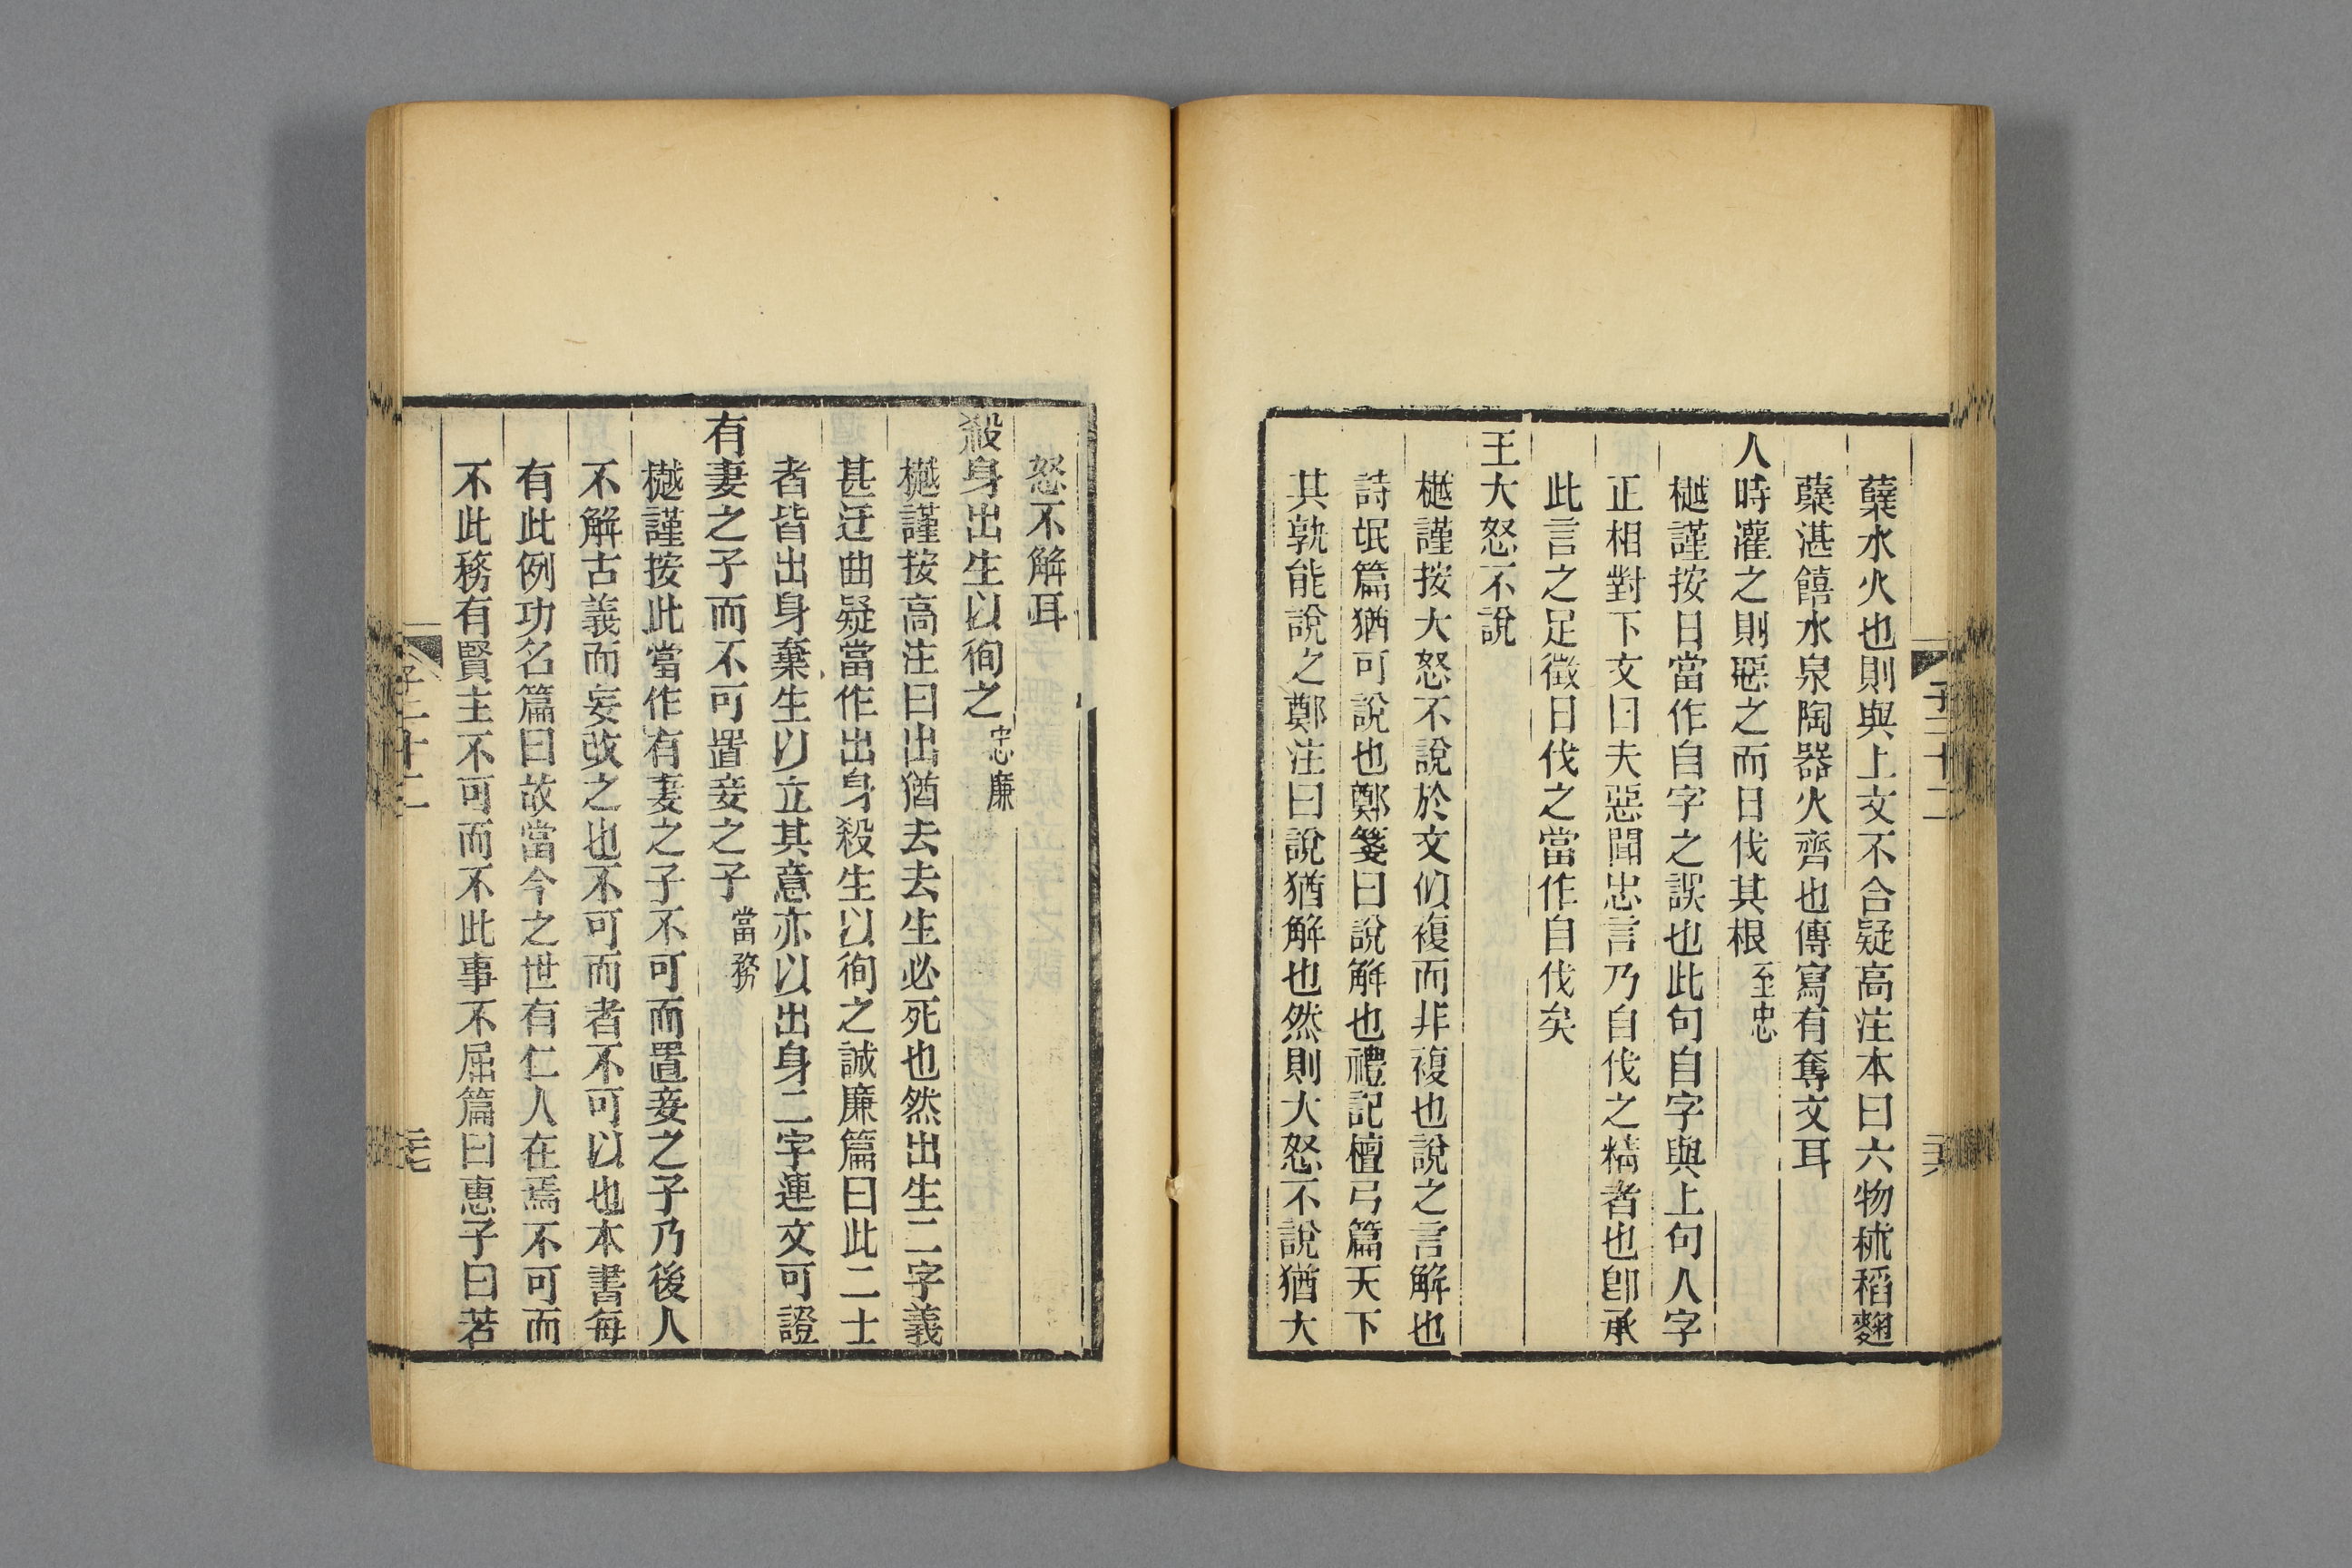 子二十二
蘖水火也則與上文不合疑高注本曰六物秫稻麴
蘖湛饎水泉陶器火齊也傳寫有奪文耳
人時灌之則惡之而日伐其根至忠
樾謹按日當作自字之誤也此句自字與上句人字
正相對下文曰夫惡聞忠言乃自伐之精者也卽承
此言之足徵日伐之當作自伐矣
王大怒不說
樾謹按大怒不說於文似複而非複也說之言解也
詩氓篇猶可說也鄭箋曰說解也禮記檀弓篇天下
其孰能說之鄭注曰說猶解也然則大怒不說猶大
怒不解耳
殺身出生以徇之忠廉
樾謹按高注曰出猶去去生必死也然出生二字義
甚迂曲疑當作出身殺生以徇之誠廉篇曰此二士
者皆出身棄生以立其意亦以出身二字連文可證
有妻之子而不可置妾之子當務
樾謹按此當作有妻之子不可而置妾之子乃後人
不解古義而妄改之也不可而者不可以也本書每
有此例功名篇曰故當今之世有仁人在焉不可而
不此務有賢主不可而不此事不屈篇曰惠子曰若
子二十二